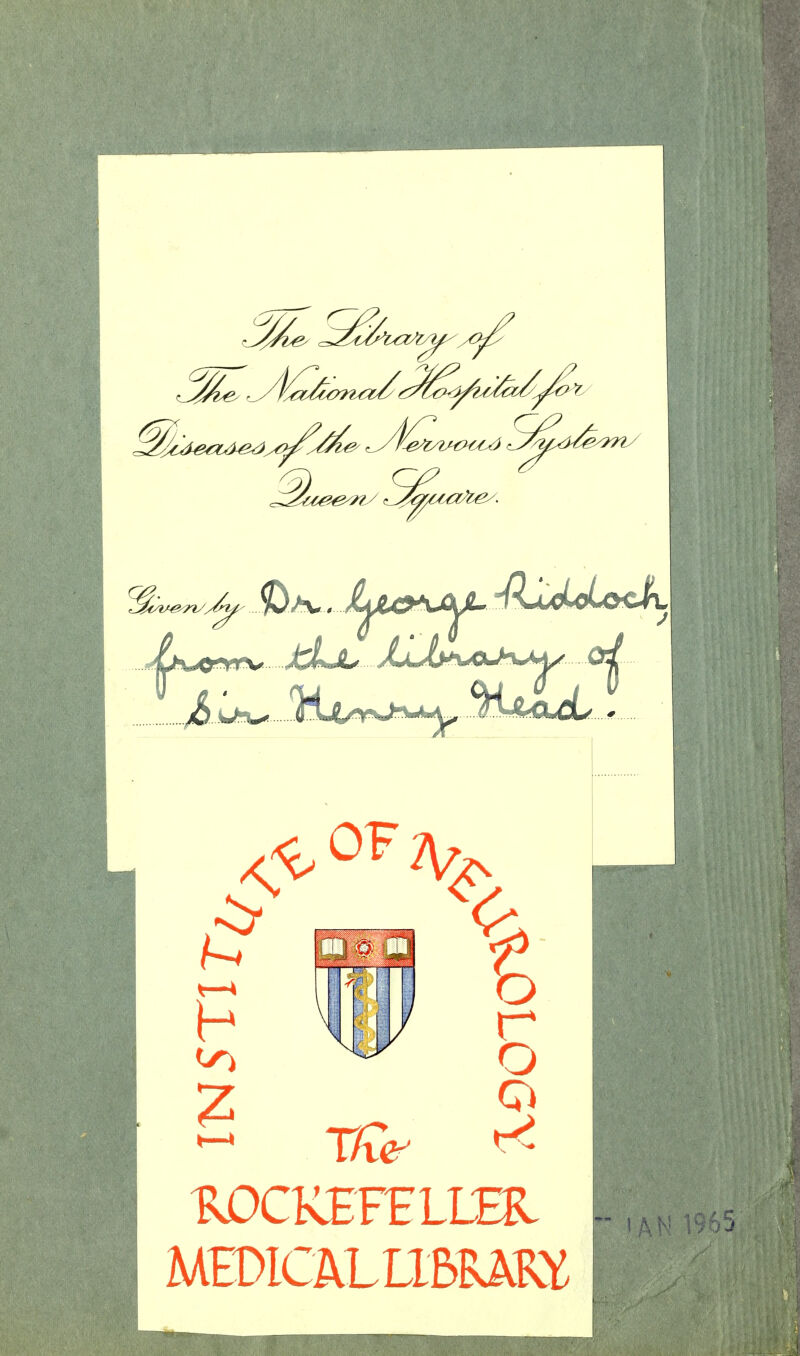 The Library of
The National Hospital for
Diseases of the Nervous System
Queen Square.
Given by Dr. George Riddoch,
from the library of
Sir Henry Head.
INSTITUTE OF NEUROLOGY
The
ROCKEFELLER
MEDICAL LIBRARY
JAN 1965